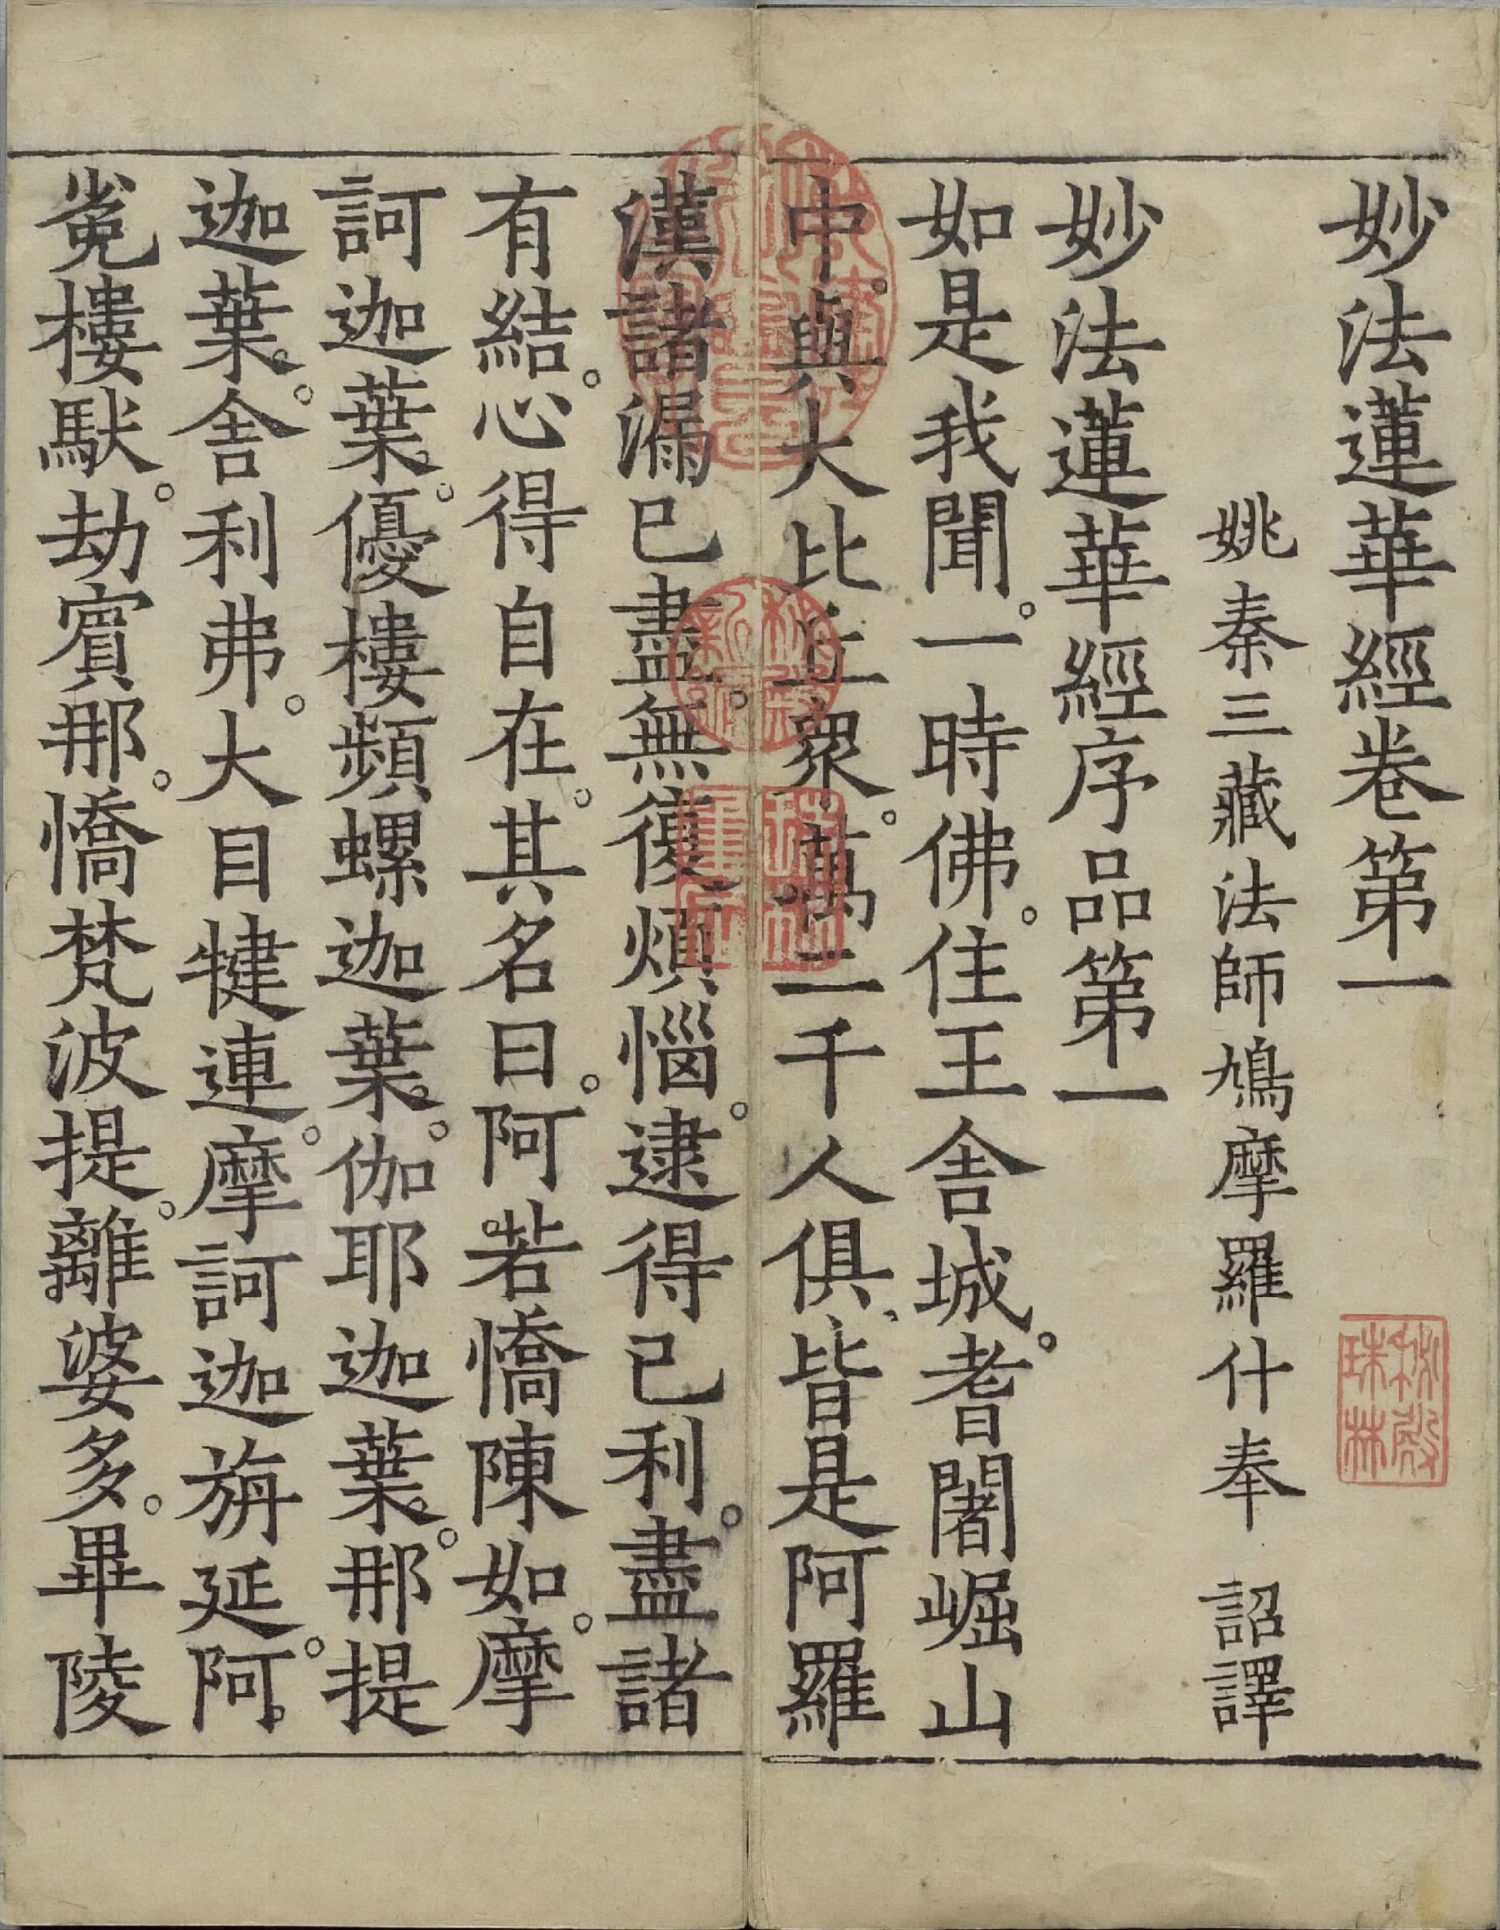 妙法蓮華經卷第一
姚秦三藏法師鳩摩羅什奉 詔譯
妙法蓮華經序品第一
如是我聞。一時佛。住王舍城。耆闍崛山
中。與大比丘衆。萬二千人俱、皆是阿羅
漢諸漏已盡。無復煩惱。逮得己利。盡諸
有結。心得自在。其名曰。阿若憍陳如。摩
訶迦葉。優樓頻螺迦葉。伽耶迦葉。那提
迦葉。舍利弗。大目犍連。摩訶迦旃延。阿
㝹樓馱。劫賓那。憍梵波提。離婆多。畢陵
珠林